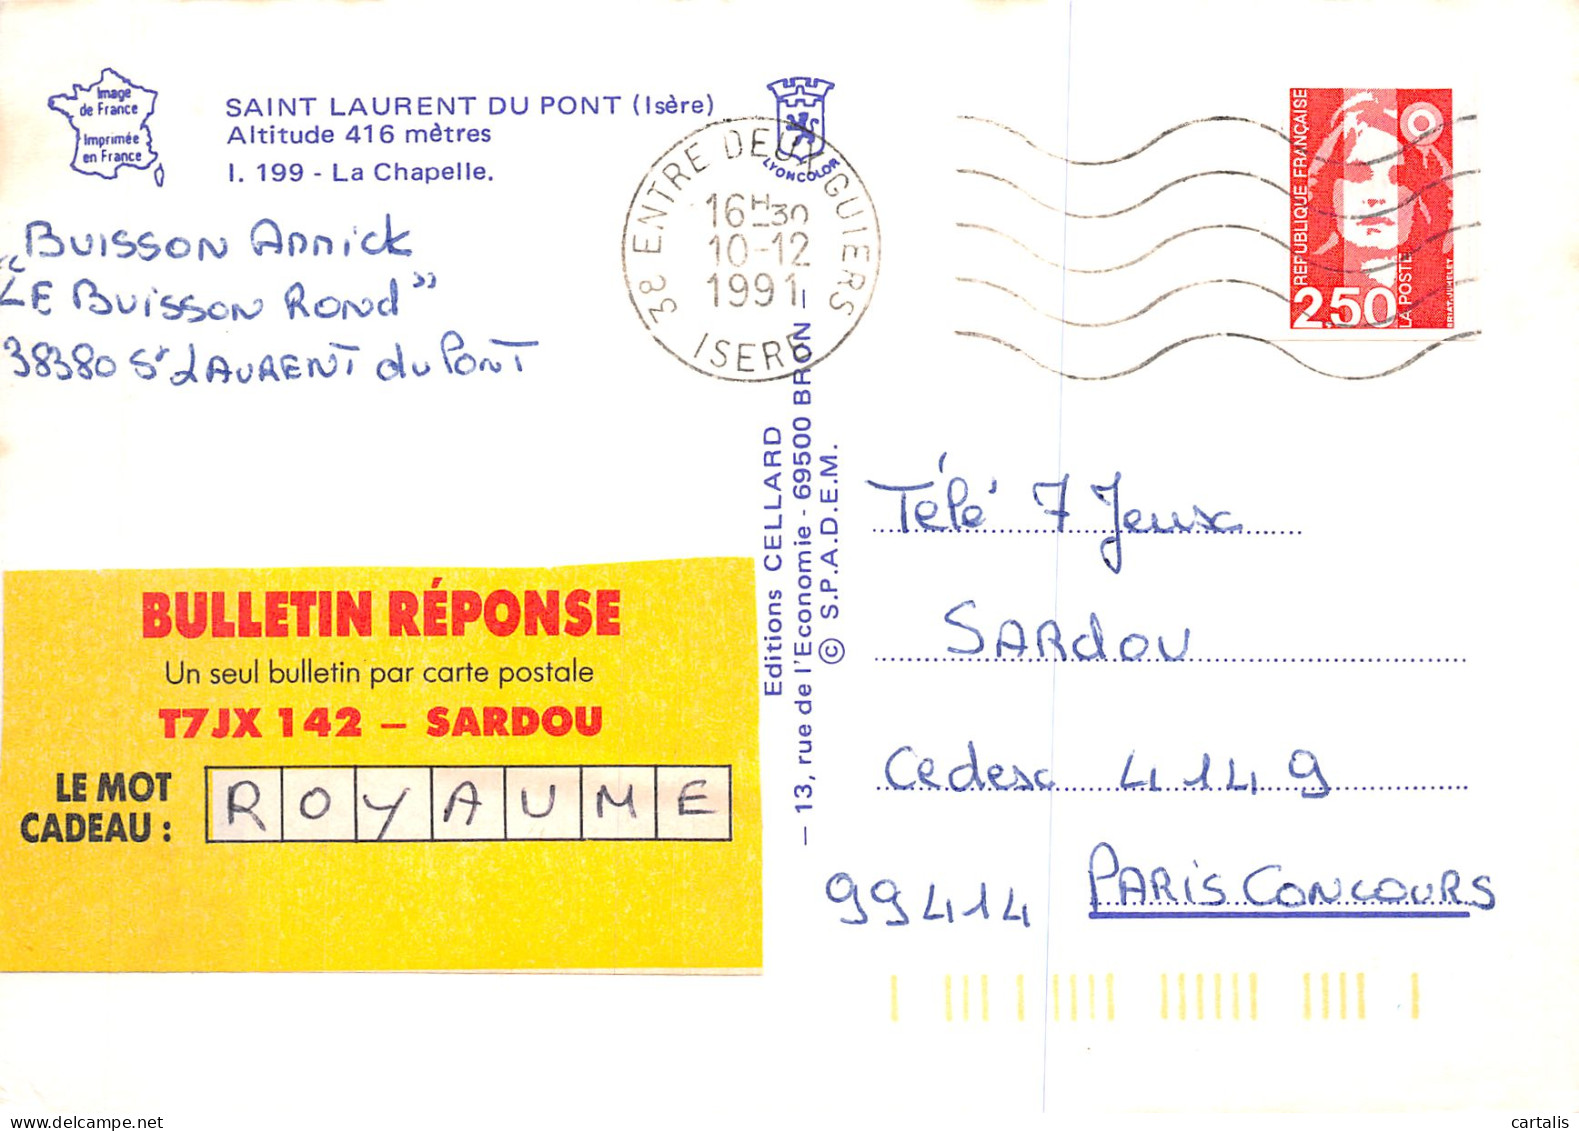 Image
de France
Imprimée
en France
SAINT LAURENT DU PONT (Isère)
Altitude 416 mètres
I. 199 - La Chapelle.
LYONCOLOR
BUISSON Annick
"LE BUISSON ROND"
38380 St LAURENT du PONT
38 ENTRE DEUX GUIERS
16H30
10-12
1991
ISERE
REPUBLIQUE FRANÇAISE
2,50
LA POSTE
BRIAT-JUMELET
Editions CELLARD
— 13, rue de l'Economie - 69500 BRON —
© S.P.A.D.E.M.
BULLETIN RÉPONSE
Un seul bulletin par carte postale
T7JX 142 – SARDOU
LE MOT
CADEAU : ROYAUME
Télé 7 Jeux
SARDOU
Cedex 4149
99414 PARIS CONCOURS
cartalis
delcampe.net